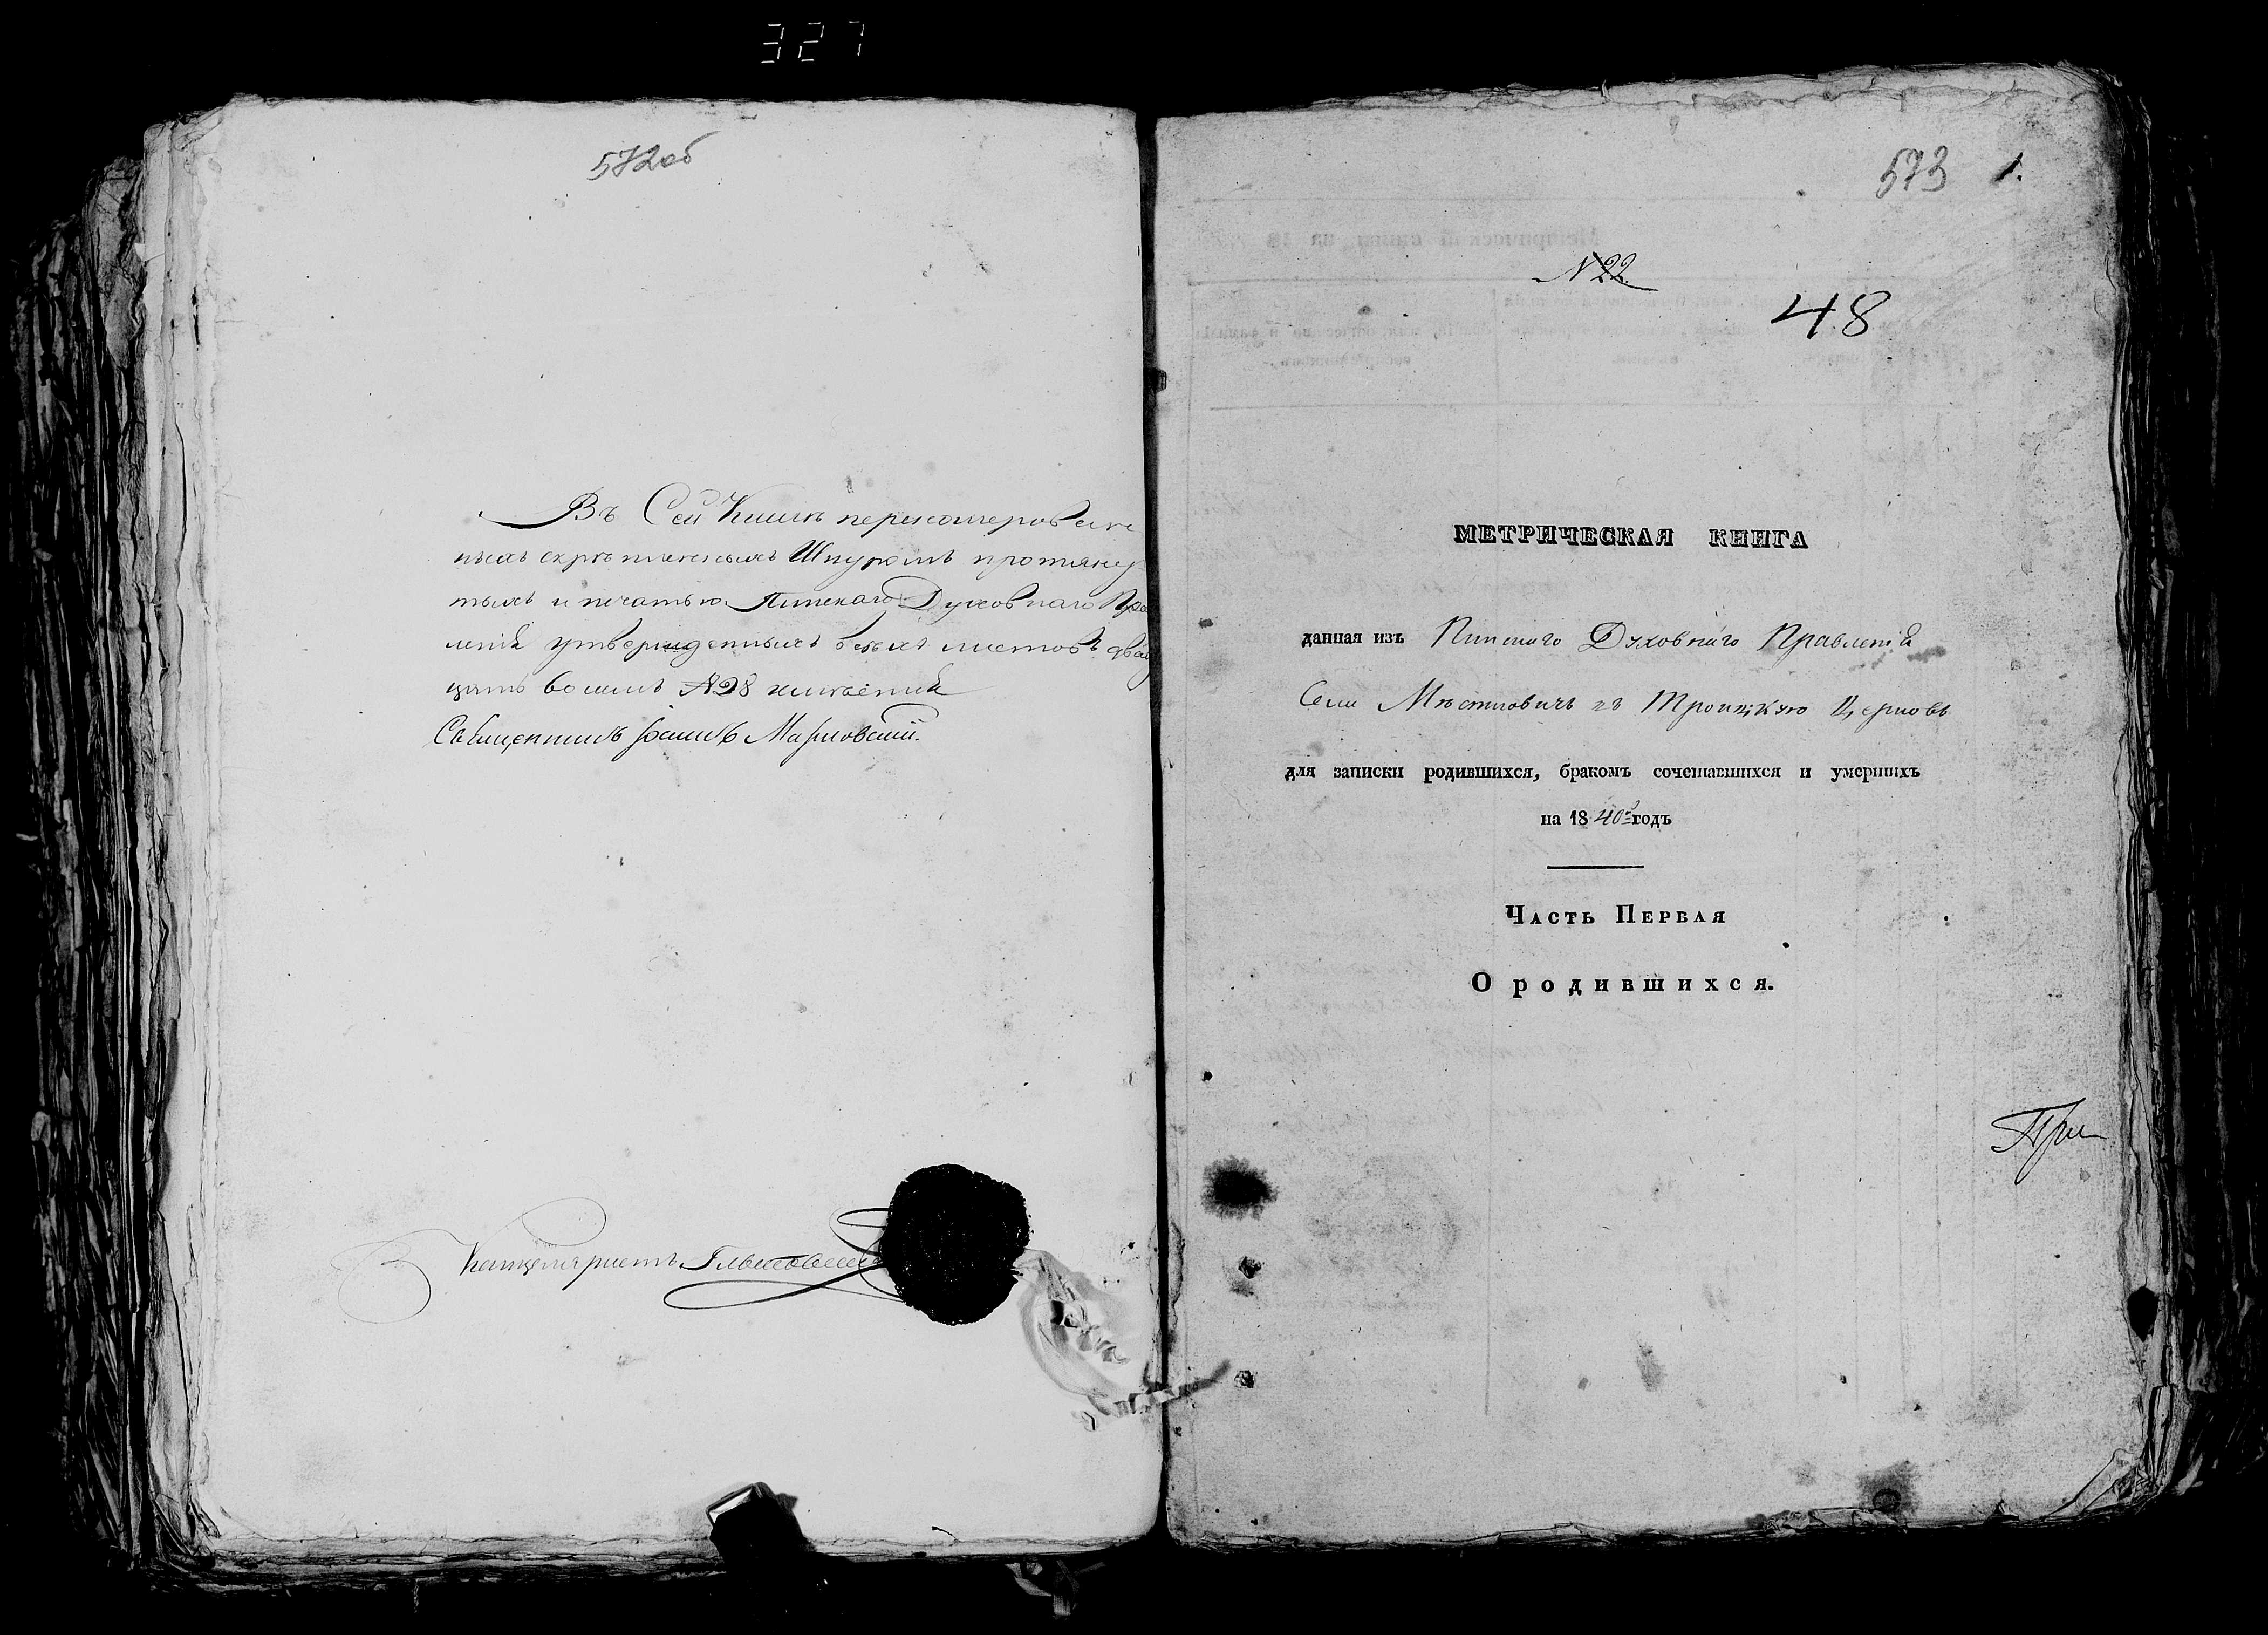 327
572об
Въ Сей Книгѣ перенумерован
ныхъ скрѣпленныхъ Шнуромъ протяну
тыхъ и печатью Пинскаго Духовнаго Прав
ленія утвержденныхъ всѣхъ листовъ двад
цать восемь №28 имѣется
Священникъ Іоаннъ
Канцеляристъ
573 1.
№22
48
МЕТРИЧЕСКАЯ КНИГА
данная изъ Пинскаго Духовнаго Правленія
въ Троицкую Церковь
для записки родившихся, бракомъ сочетавшихся и умершихъ
на 1840й годъ
Часть Первая
О родившихся.
При